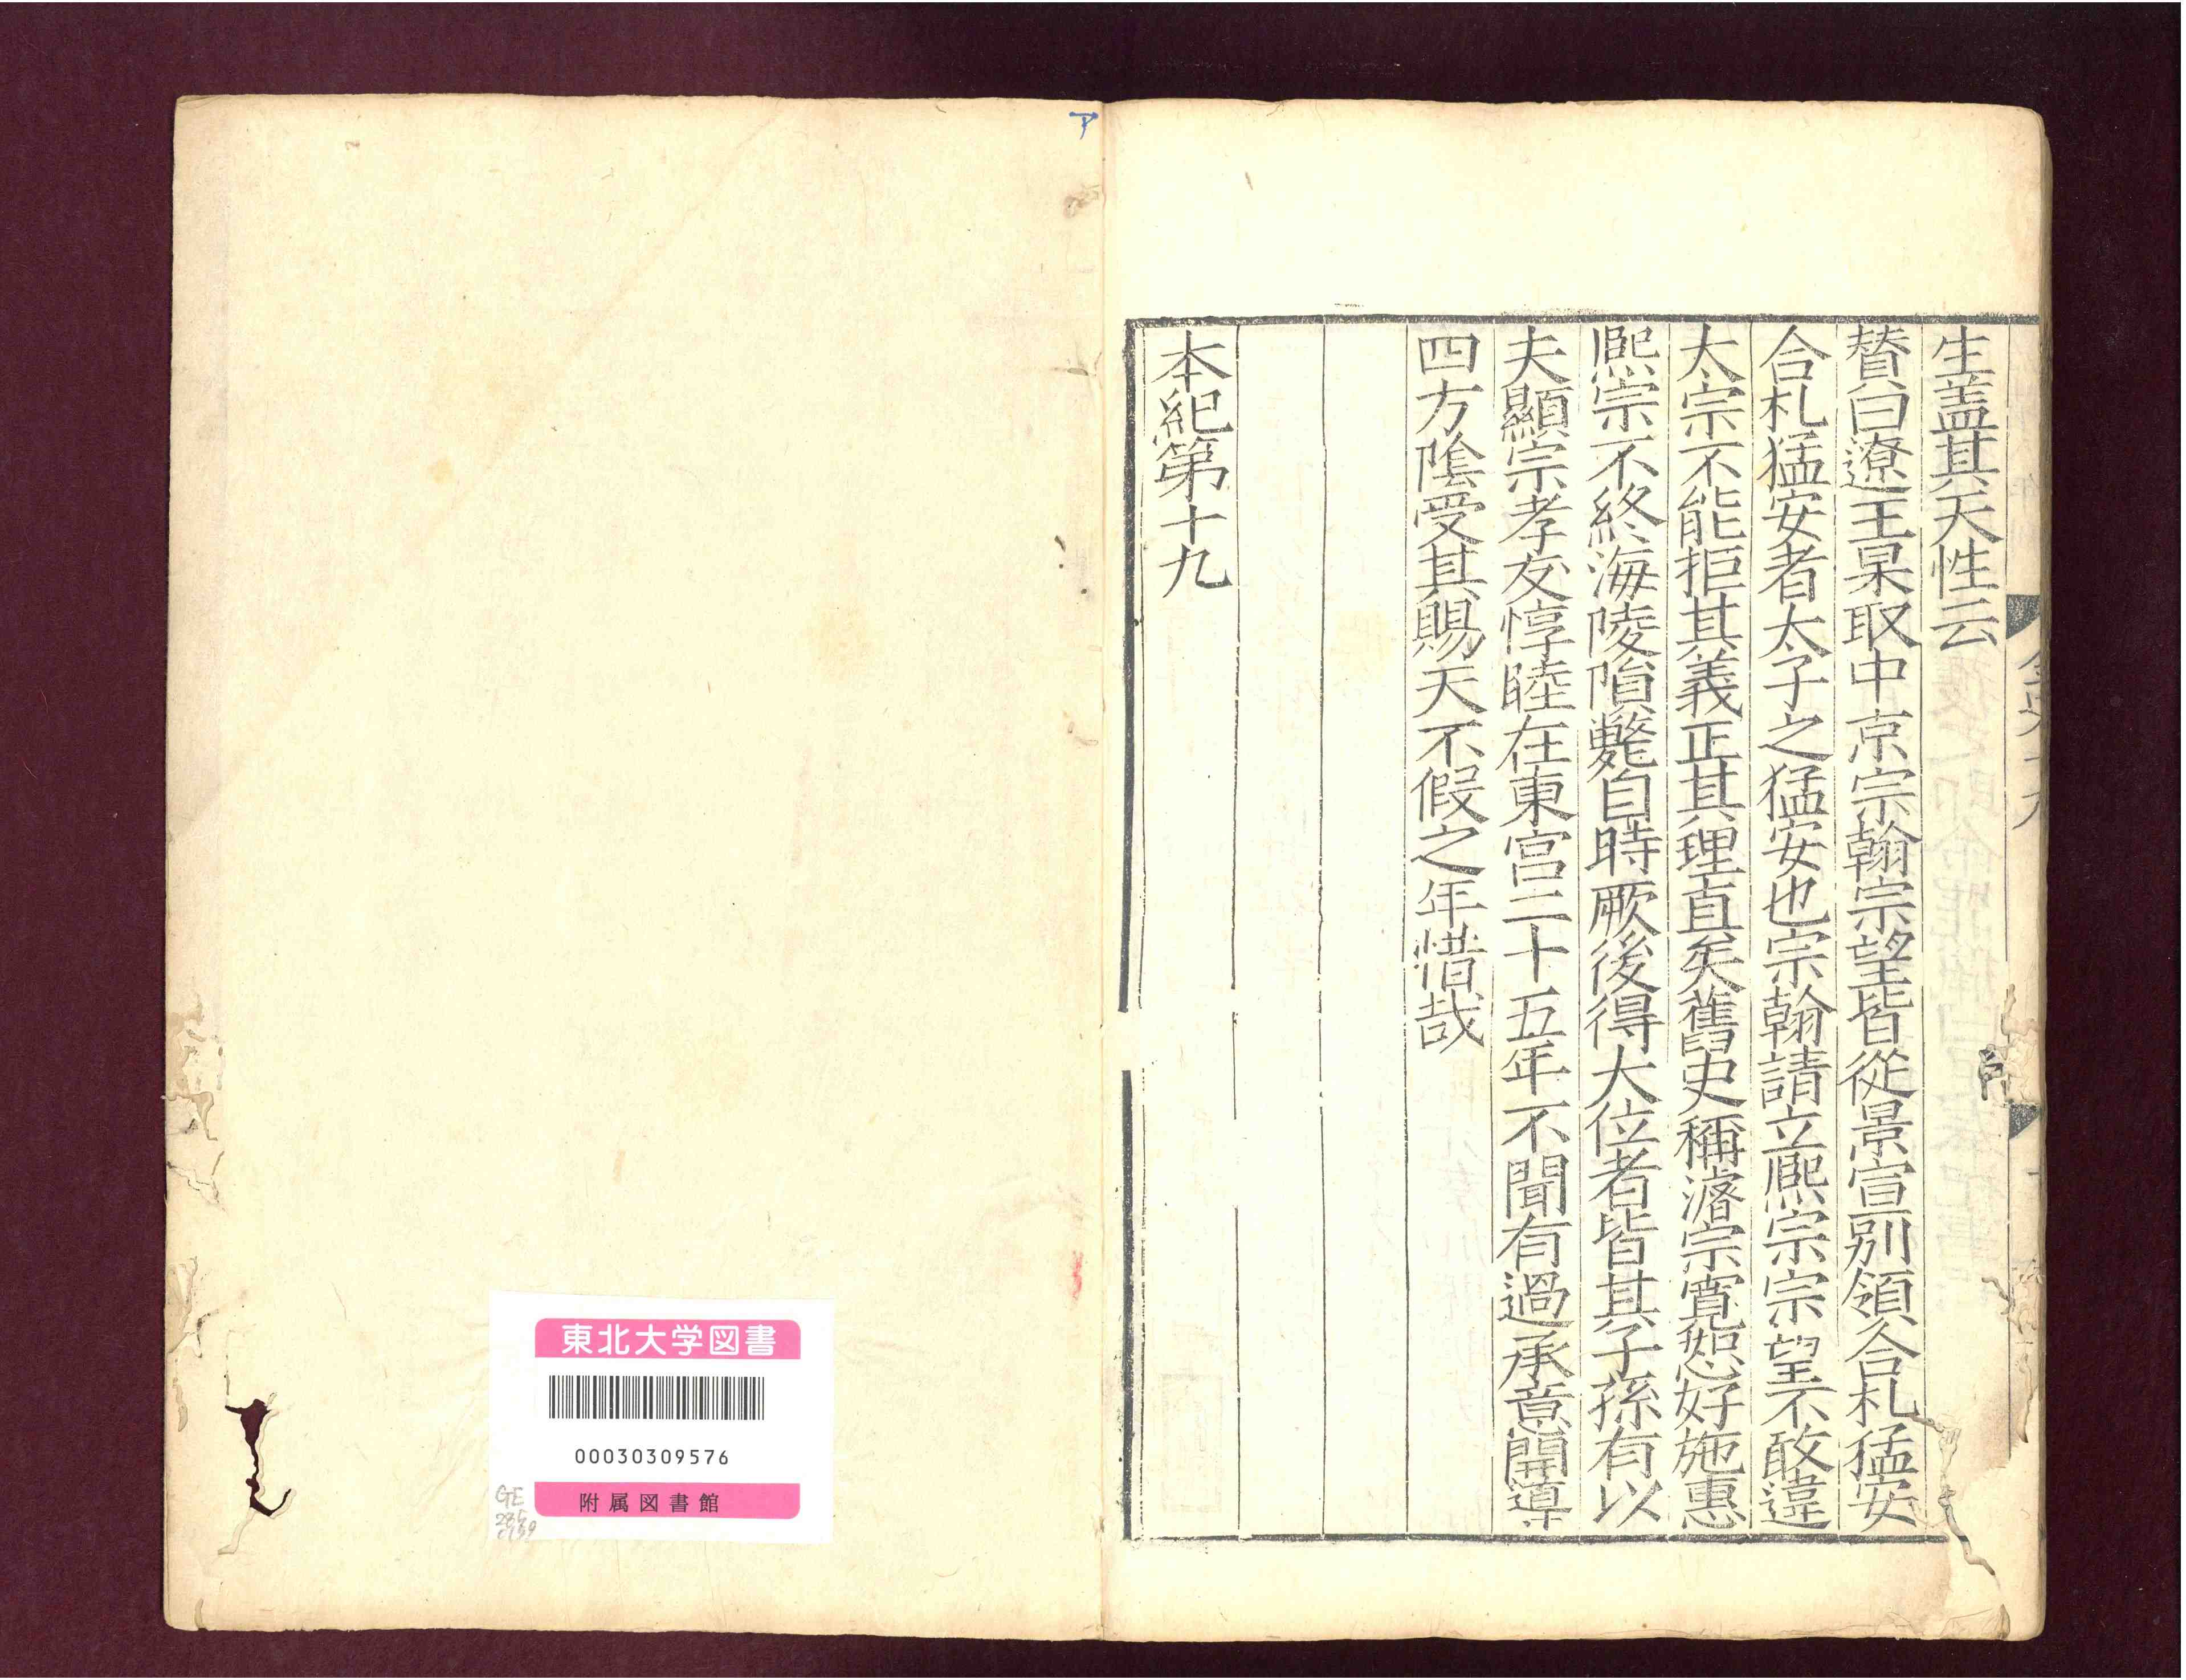 生蓋其天性云
賛曰遼王杲取中京宗翰宗望皆從景宣別領合札猛安
合札猛安者太子之猛安也宗翰請立熈宗宗望不敢違
太宗不能拒其義正其理直矣舊史稱濬宗寬恕好施惠
熈宗不終海陵隕斃自時厥後得大位者皆其子孫有以
夫顯宗孝友惇睦在東宮二十五年不聞有過承意開導
四方陰受其賜天不假之年惜哉
本紀第十九
東北大学図書
00030309576
附属図書館